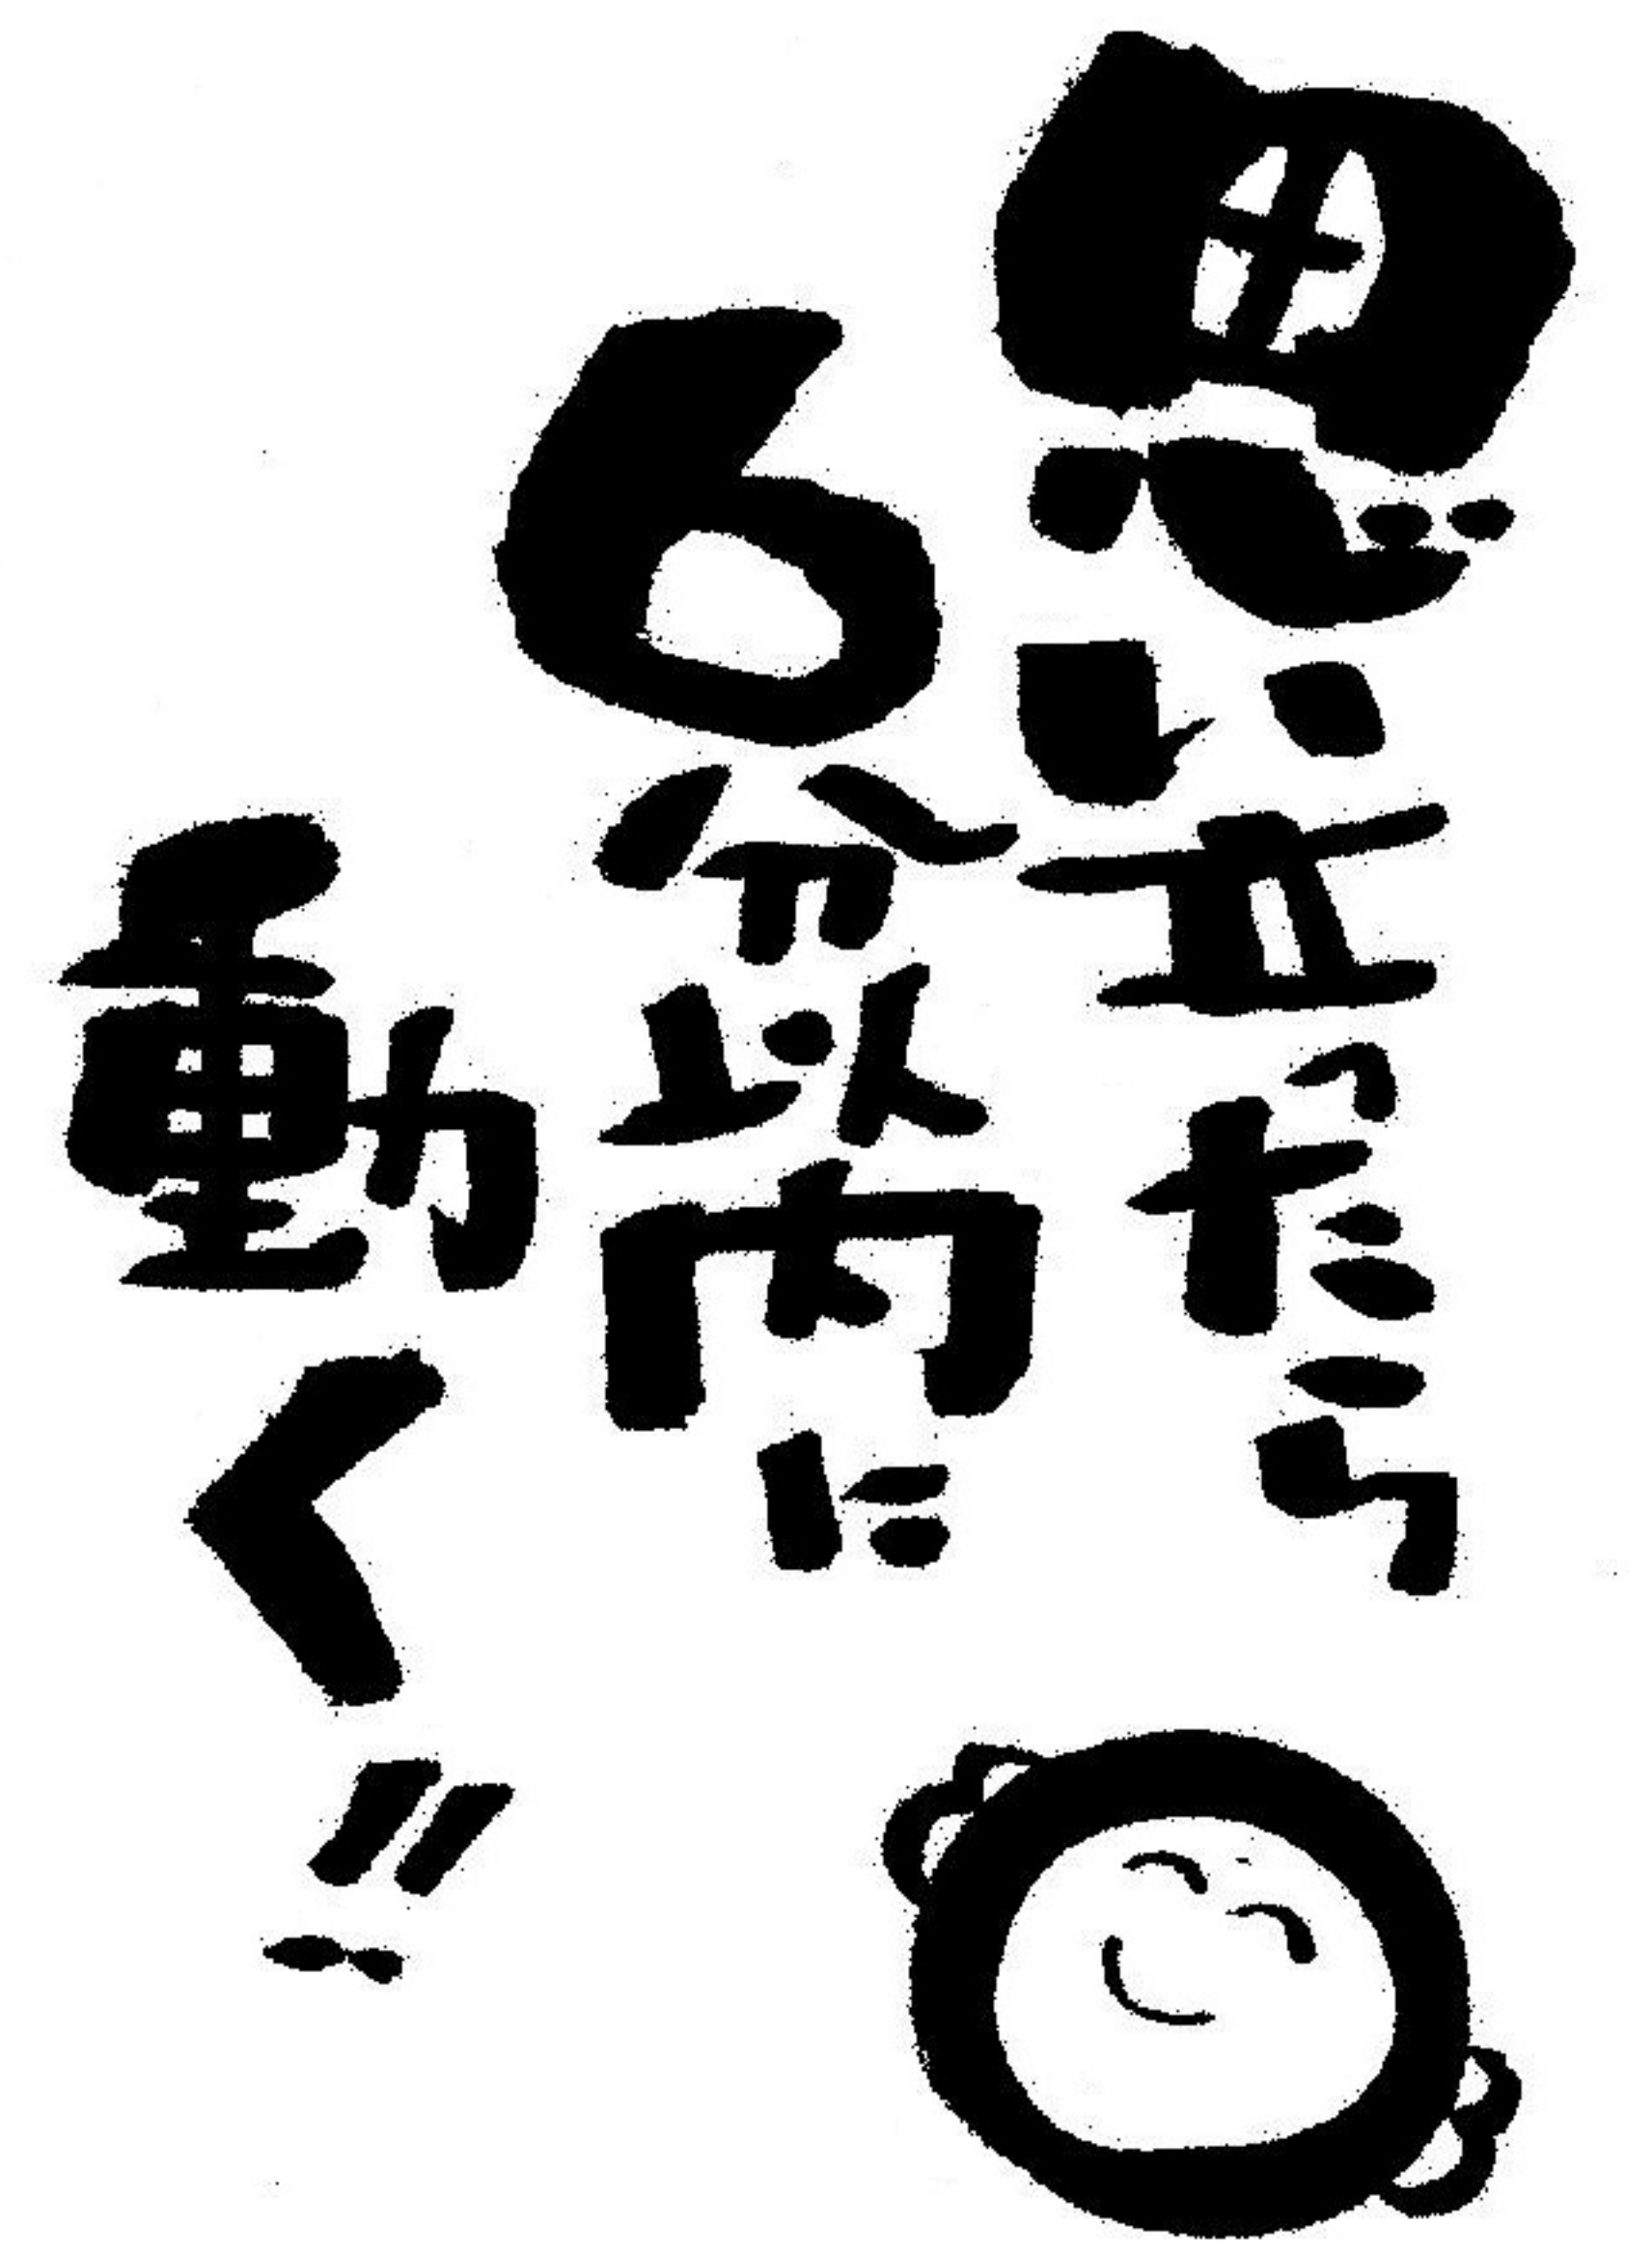 思い立ったら
6分以内に
動く!!